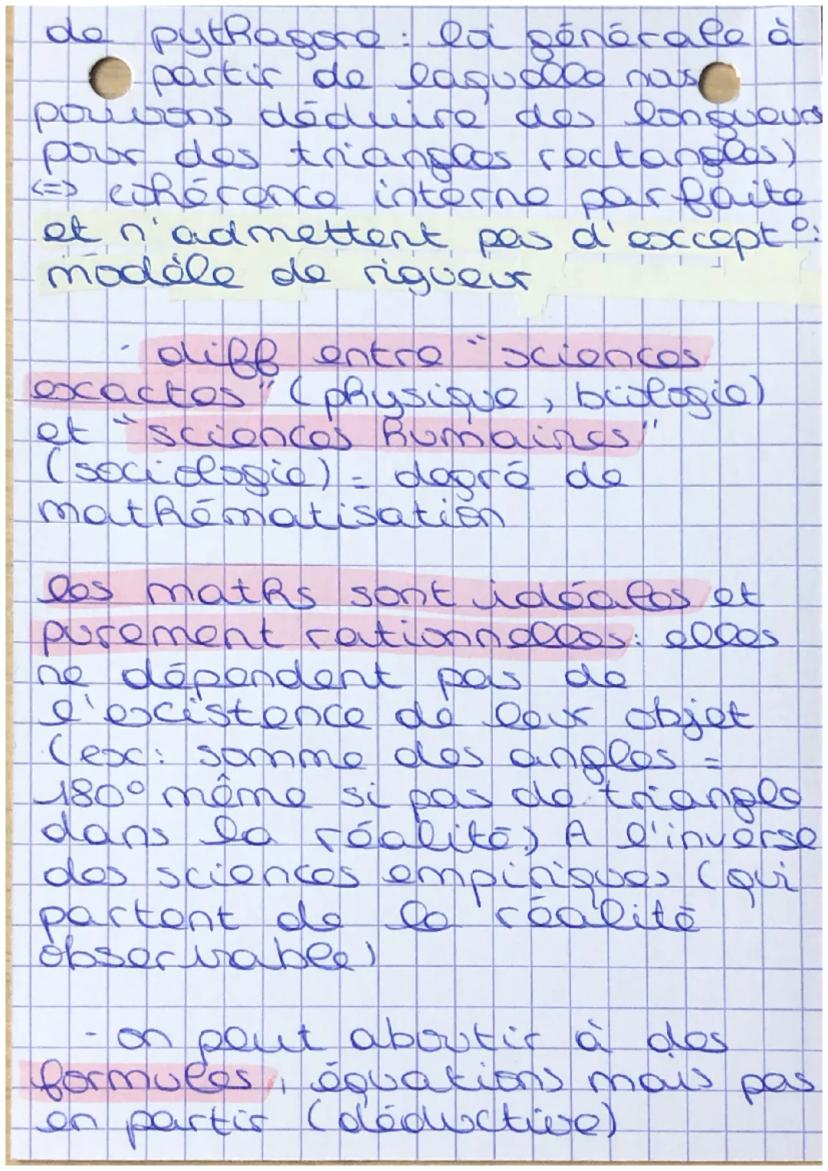 de pythagore : loi générale à
partir de laquelle nous
pouvons déduire des longueurs
pour des triangles rectangles)
<=> cohérence interne parfaite
et n'admettent pas d'except° :
modèle de rigueur
- diff entre "sciences
exactes" (physique, biologie)
et "sciences humaines"
(sociologie) = degré de
mathématisation
les maths sont idéales et
purement rationnelles : elles
ne dépendent pas de
l'existence de leur objet
(ex : somme des angles =
180° même si pas de triangle
dans la réalité.) A l'inverse
des sciences empiriques (qui
partent de la réalité
observable)
- on peut aboutir à des
formules, équations mais pas
en partir (déductive)